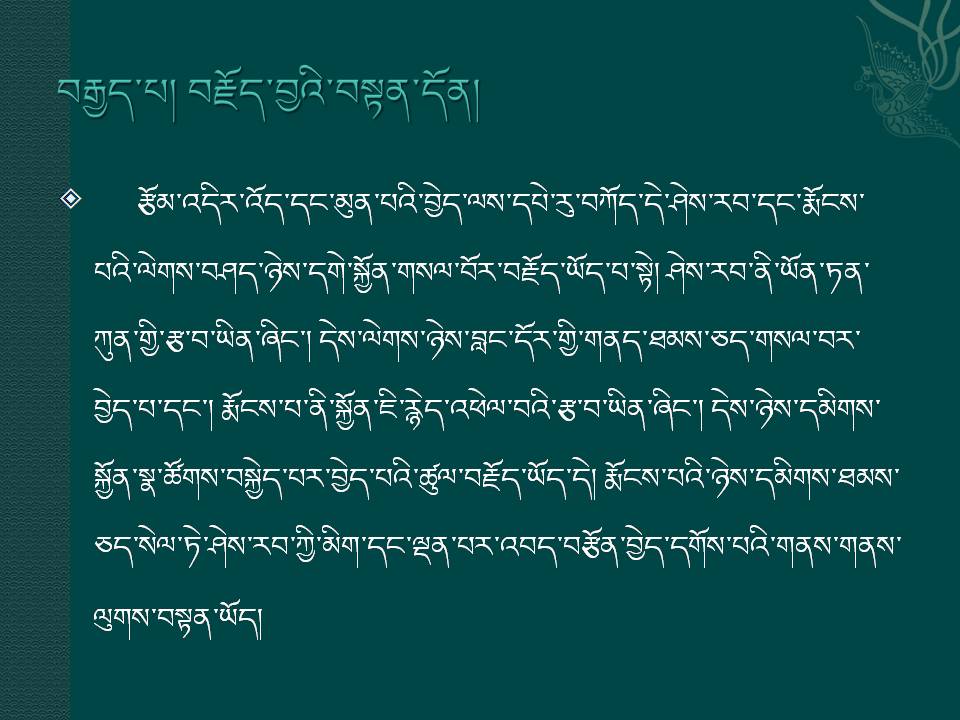 བརྒྱད་པ། བརྗོད་བྱའི་བསྟན་དོན།
རྩོམ་འདིར་འོད་དང་མུན་པའི་བྱེད་ལས་དཔེ་རུ་བཀོད་དེ་ཤེས་རབ་དང་རྨོངས་
པའི་ལེགས་བཤད་ཉེས་དགེ་སྐྱོན་གསལ་བོར་བརྗོད་ཡོད་པ་སྟེ། ཤེས་རབ་ནི་ཡོན་ཏན་
ཀུན་གྱི་རྩ་བ་ཡིན་ཞིང་། དེས་ལེགས་ཉེས་བླང་དོར་གྱི་གནད་ཐམས་ཅད་གསལ་བར་
བྱེད་པ་དང་། རྨོངས་པ་ནི་སྐྱོན་ཇི་རྙེད་འཕེལ་བའི་རྩ་བ་ཡིན་ཞིང་། དེས་ཉེས་དམིགས་
སྐྱོན་སྣ་ཚོགས་བསྐྱེད་པར་བྱེད་པའི་ཚུལ་བརྗོད་ཡོད་དེ། རྨོངས་པའི་ཉེས་དམིགས་ཐམས་
ཅད་སེལ་ཏེ་ཤེས་རབ་ཀྱི་མིག་དང་ལྡན་པར་འབད་བརྩོན་བྱེད་དགོས་པའི་གནས་གནས་
ལུགས་བསྟན་ཡོད།